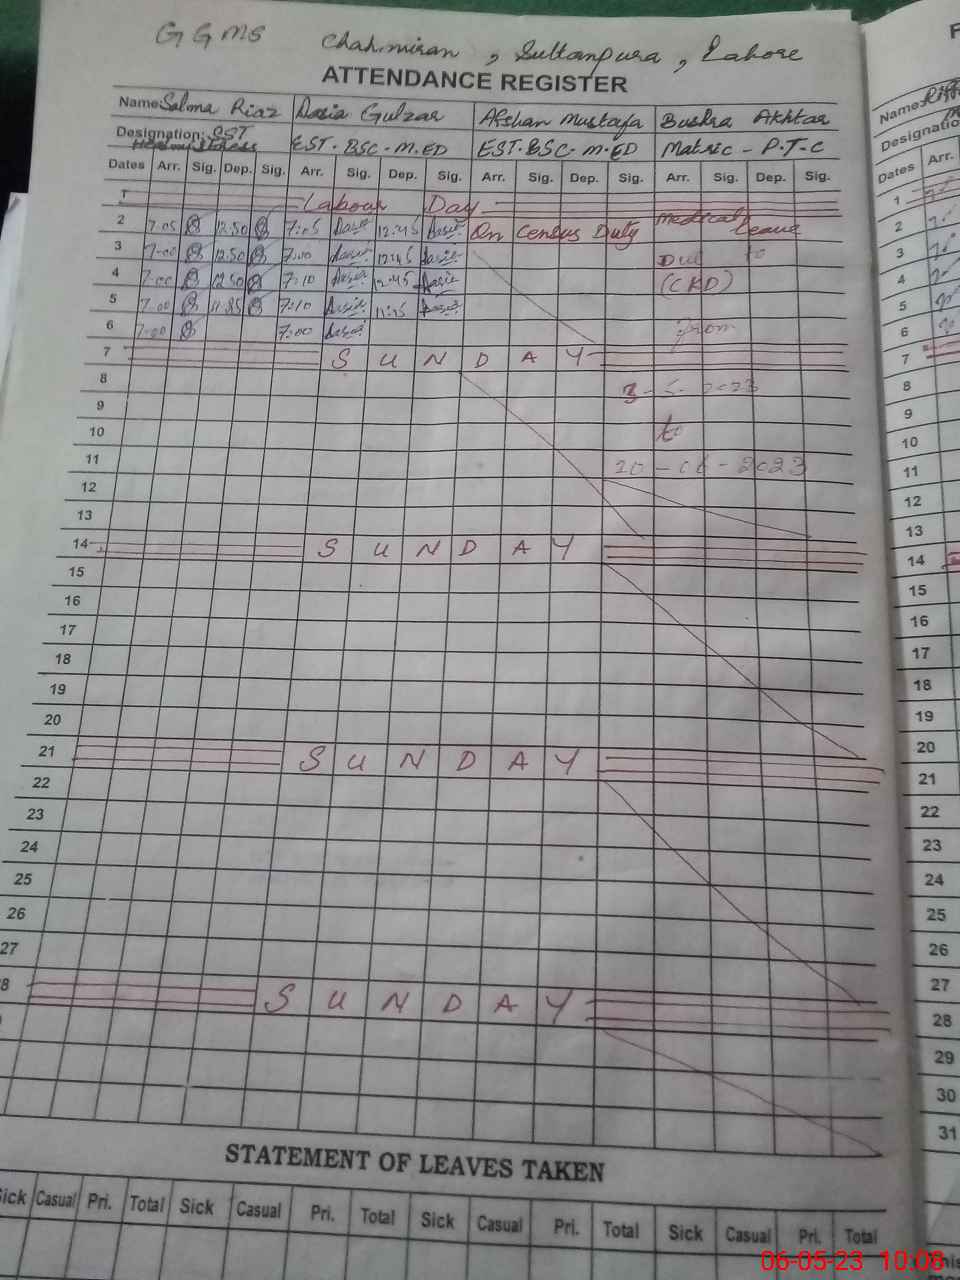 GGMS Chahmiran, Sultanpura, Lahore
ATTENDANCE REGISTER
Name: Salma Riaz Dasia Gulzar Afshan Mustafa Bushra Akhtar
Designation: SST Headmistress EST-BSC-M.ED EST.BSC-M.ED Matric - P.T.C
Dates Arr. Sig. Dep. Sig. Arr. Sig. Dep. Sig. Arr. Sig. Dep. Sig. Arr. Sig. Dep. Sig.
1 Labour Day
2 7-05 12.50 7:05 12:45 On Census Duty Medical leave
3 7-00 12.50 7:10 12:45 Due to
4 7-00 12.50 7:10 12:45 (CKD)
5 7-00 11.35 7:10 11:15
6 7-00 7:00 from
7 SUNDAY
8 3-5-2023
9
10 to
11 20-06-2023
12
13
14 SUNDAY
15
16
17
18
19
20
21 SUNDAY
22
23
24
25
26
27
8 SUNDAY
STATEMENT OF LEAVES TAKEN
Sick Casual Pri. Total Sick Casual Pri. Total Sick Casual Pri. Total Sick Casual Pri. Total
Name:
Designatio
Dates Arr.
1
2
3
4
5
6
7
8
9
10
11
12
13
14
15
16
17
18
19
20
21
22
23
24
25
26
27
28
29
30
31
06-05-23 10:08